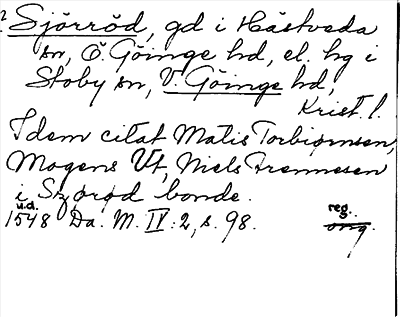 ? Sjörröd, gd i Hästveda
sn, Ö. Göinge hd, el. hg i
Stoby sn, V. Göinge hd,
Krist. l.
Idem citat Matis Torbiørnsen,
Mogens Vt, Niels Frennesen
i Szørød bonde.
u.d.
1548 Da. M. IV: 2, s. 98.
reg.
orig.